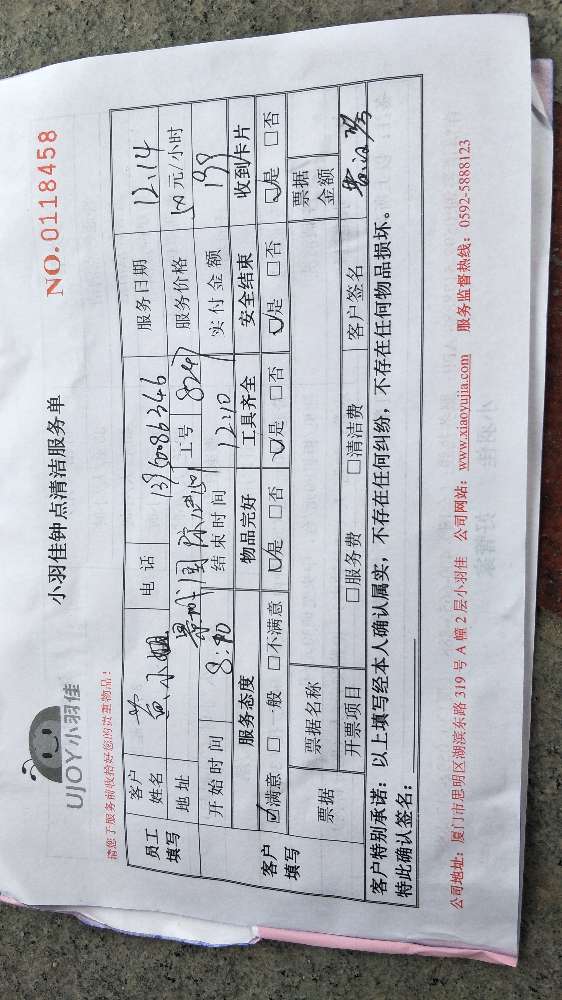 UJOY小羽佳
小羽佳钟点清洁服务单
NO.0118458
请您于服务前收拾好您的贵重物品!
员工填写 客户姓名 黄小姐 电话 服务日期 12.14
地址 工号 8247 服务价格 50元/小时
开始时间 结束时间 12:10 实付金额
客户填写 服务态度 物品完好 工具齐全 安全结束 收到卡片
☑满意 □一般 □不满意 ☑是 □否 ☑是 □否 ☑是 □否 ☑是 □否
票据 票据名称 票据金额
开票项目 □服务费 □清洁费 客户签名
客户特别承诺:以上填写经本人确认属实,不存在任何纠纷,不存在任何物品损坏。
特此确认签名:
公司地址:厦门市思明区湖滨东路 319 号 A 幢 2 层小羽佳 公司网站:www.xiaoyujia.com 服务监督热线:0592-5888123